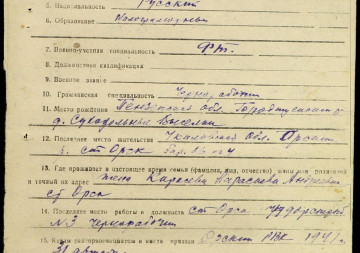 5. Национальность Русский
6. Образование Малограмотный
7. Военно-учетная специальность
8. Должностная квалификация
9. Военное звание
10. Гражданская специальность Чернорабочий
11. Место рождения Пензенская обл. Городищенский
д. Суходольные Выселки
12. Последнее место жительства Чкаловская обл. Орский
ст. Орск бар. № 4
13. Где проживает в настоящее время семья (фамилия, имя, отчество) женщины, родителей
и точный их адрес жена Карасева
ст. Орск
14. Последнее место работы и должность ст. Орск
№ 3 чернорабочий
15. Каким райвоенкоматом и когда призван Орский РВК 1941 г.
31 августа